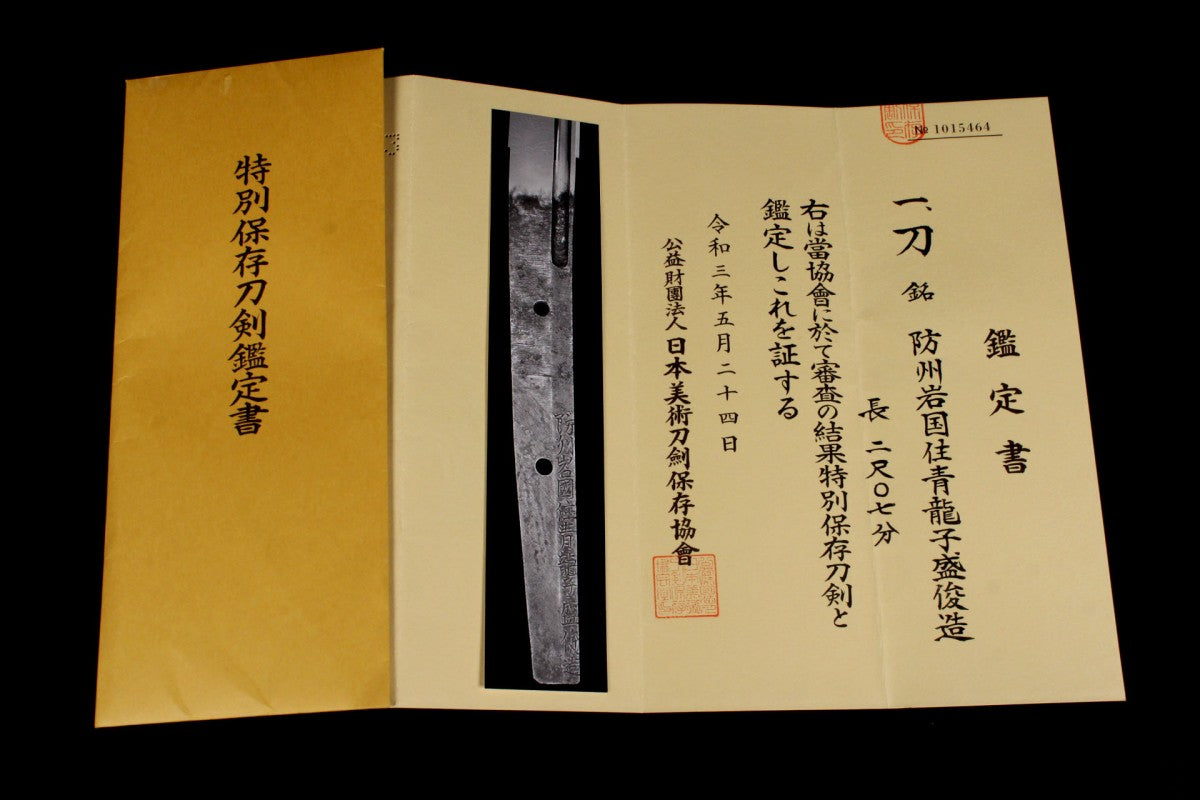 特別保存刀剣鑑定書
№ 1015464
鑑定書
一、刀 銘 防州岩国住青龍子盛俊造
長 二尺〇七分
右は當協會に於て審査の結果特別保存刀剣と
鑑定しこれを証する
令和三年五月二十四日
公益財團法人日本美術刀劍保存協會
防州岩国住青龍子盛俊造